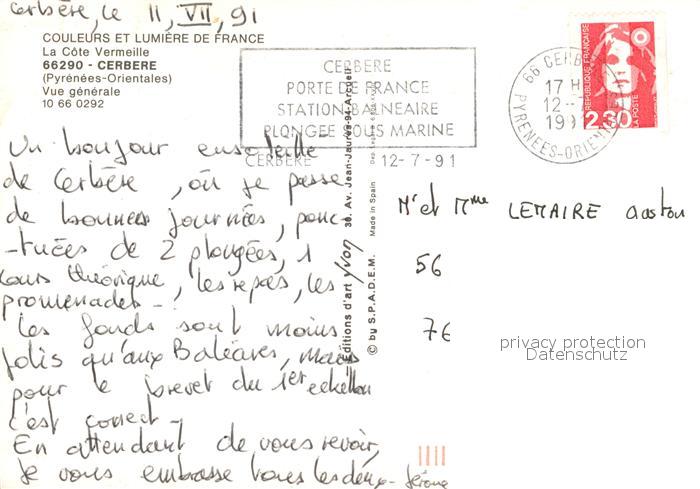 Cerbère, le 11, VII, 91
COULEURS ET LUMIÈRE DE FRANCE
La Côte Vermeille
66290 - CERBERE
(Pyrénées-Orientales)
Vue générale
10 66 0292
CERBERE
PORTE DE FRANCE
STATION BALNEAIRE
PLONGEE SOUS MARINE
CERBERE 12-7-91
66 CERB
17 H
12 -
19
PYRENEES-ORIEN
REPUBLIQUE FRANÇAISE
2,30
LA POSTE
Un bonjour ensoleillé
de Cerbère, où je passe
de bonnes journées, ponc-
-tuées de 2 plongées, 1
cours théorique, les repas, les
promenades -
Les fonds sont moins
jolis qu'aux Baléares, mais
pour le brevet du 1er echelon
c'est correct -
En attendant de vous revoir,
Je vous embrasse tous les deux - Jérôme
Editions d'art yvon 30, Av. Jean-Jaurès-94-Arcueil
© by S.P.A.D.E.M. Made in Spain
Mr et Mme LEMAIRE Gaston
56
76
privacy protection
Datenschutz